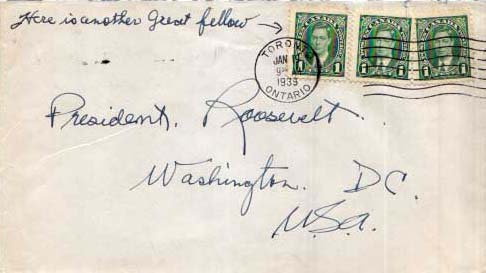 Here is another Great fellow
CANADA CANADA CANADA
1 1 1 1 1 1
TORONTO
JAN
1939
ONTARIO
President. Roosevelt.
Washington. DC.
U.S.A.